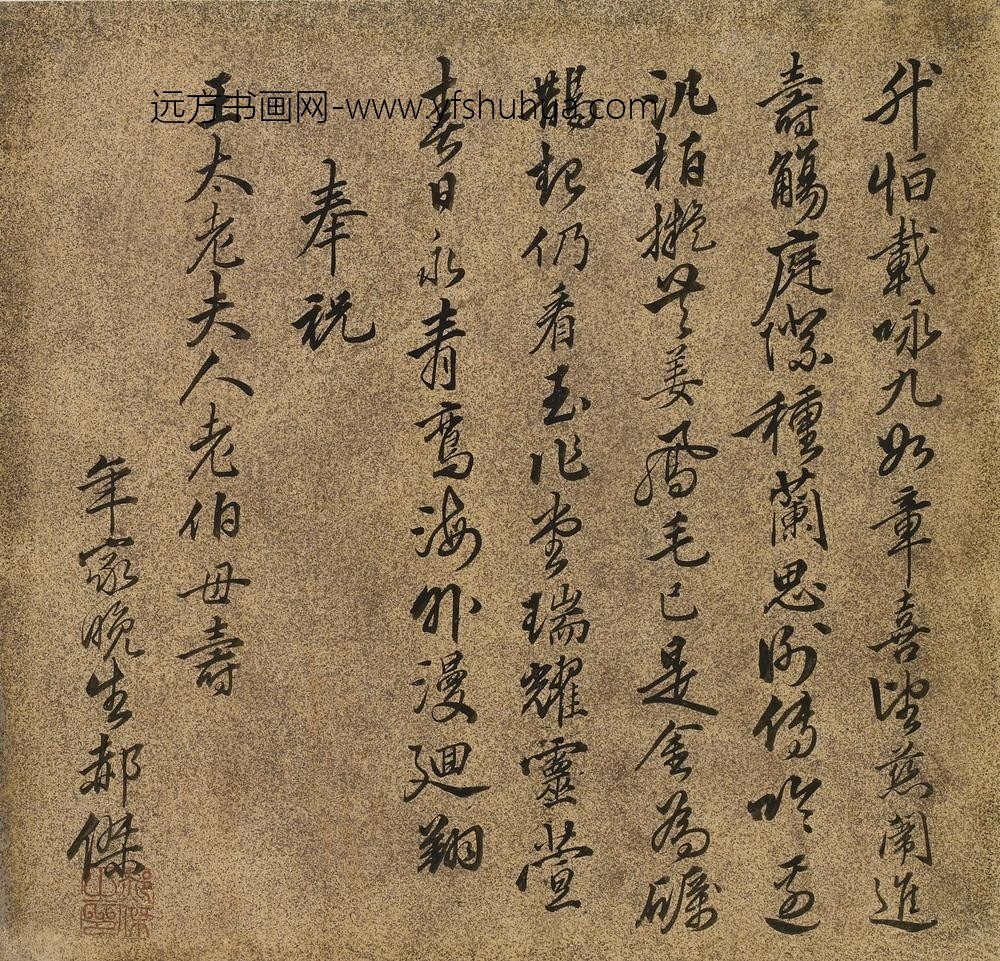 升恒載咏九如章喜望慈闈進
壽觴庭際種蘭思謝傅吟邊
汎柏擬共姜鳳毛已是金為礪
鵲起仍看玉作堂瑞耀靈萱
春日永青鸞海外漫迴翔
奉祝
王太老夫人老伯母壽
年家晚生郝傑
远方书画网-www.yfshuhua.com